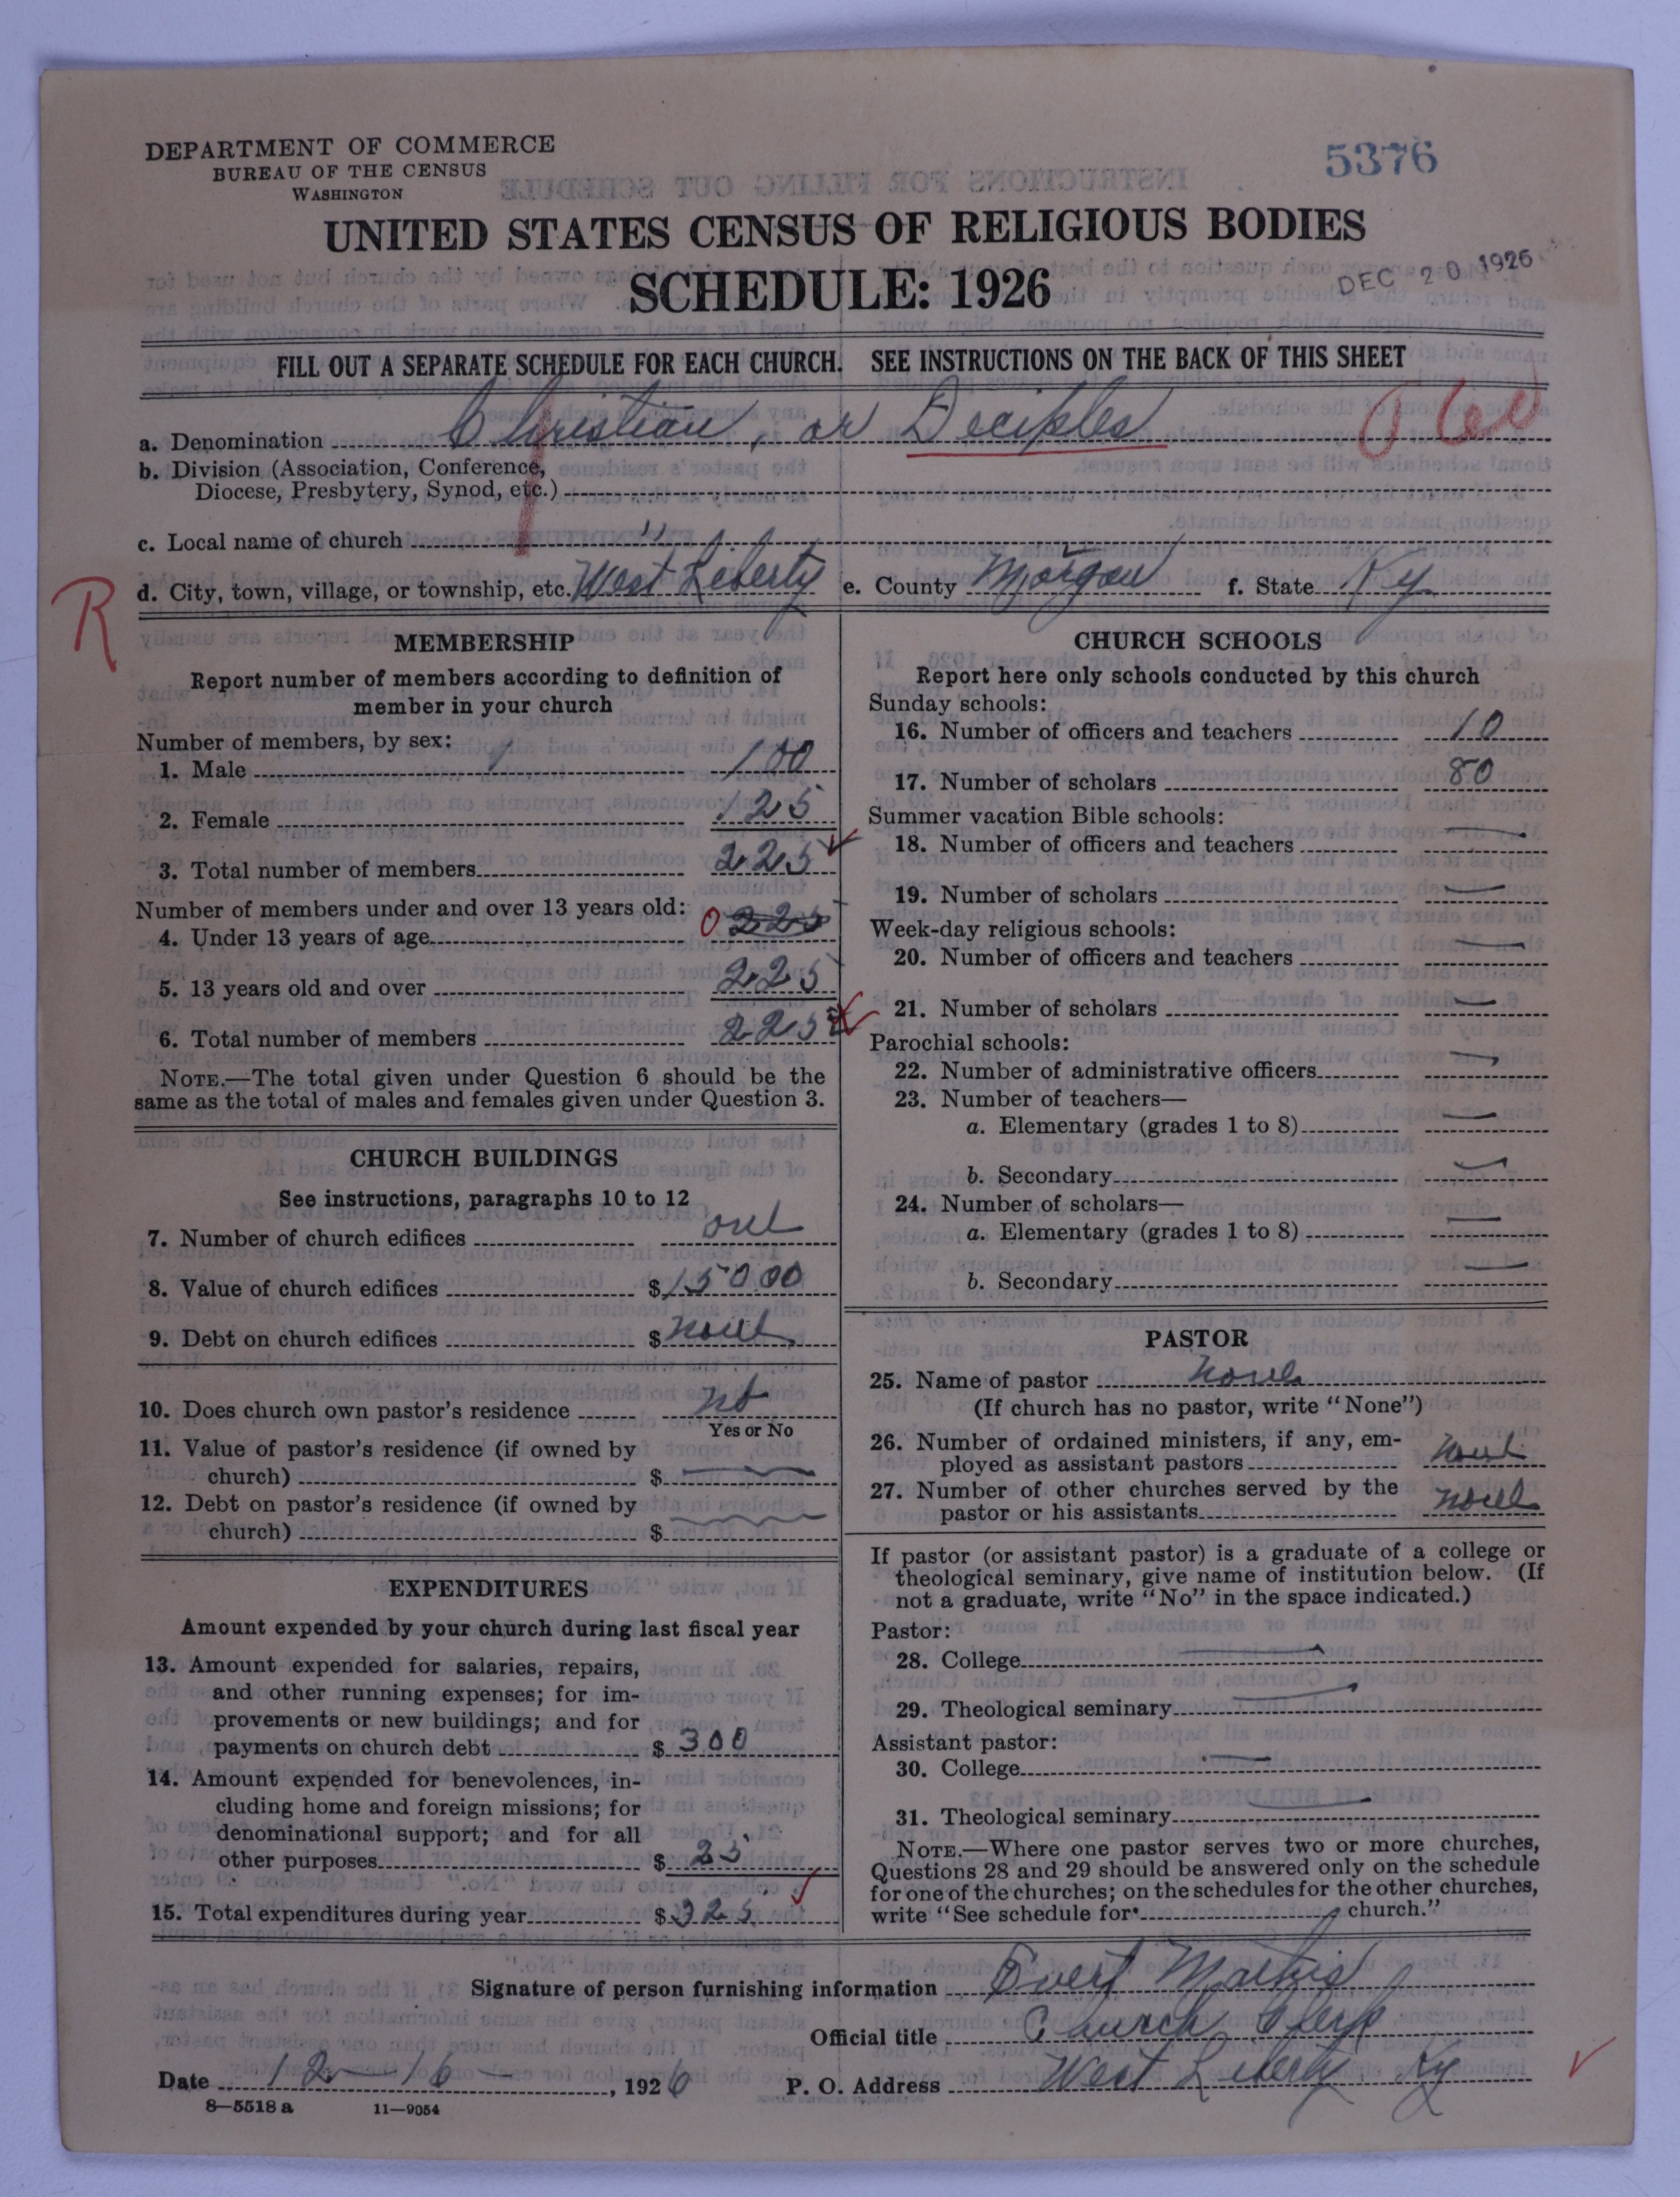 DEPARTMENT OF COMMERCE
BUREAU OF THE CENSUS
WASHINGTON
5376
UNITED STATES CENSUS OF RELIGIOUS BODIES
SCHEDULE: 1926
DEC 20 1926
FILL OUT A SEPARATE SCHEDULE FOR EACH CHURCH. SEE INSTRUCTIONS ON THE BACK OF THIS SHEET
a. Denomination Christian, or Deciples
b. Division (Association, Conference,
Diocese, Presbytery, Synod, etc.)
c. Local name of church "
R
d. City, town, village, or township, etc. West Liberty e. County Morgan f. State Ky
MEMBERSHIP
Report number of members according to definition of
member in your church
Number of members, by sex:
1. Male 100
2. Female 125
3. Total number of members 225
Number of members under and over 13 years old:
4. Under 13 years of age 0 225
5. 13 years old and over 225
6. Total number of members 225
NOTE.—The total given under Question 6 should be the
same as the total of males and females given under Question 3.
CHURCH BUILDINGS
See instructions, paragraphs 10 to 12
7. Number of church edifices one
8. Value of church edifices $15000
9. Debt on church edifices $ none
10. Does church own pastor's residence no
Yes or No
11. Value of pastor's residence (if owned by
church) $ —
12. Debt on pastor's residence (if owned by
church) $ —
EXPENDITURES
Amount expended by your church during last fiscal year
13. Amount expended for salaries, repairs,
and other running expenses; for im-
provements or new buildings; and for
payments on church debt $ 300
14. Amount expended for benevolences, in-
cluding home and foreign missions; for
denominational support; and for all
other purposes $ 25
15. Total expenditures during year $ 325
CHURCH SCHOOLS
Report here only schools conducted by this church
Sunday schools:
16. Number of officers and teachers 10
17. Number of scholars 80
Summer vacation Bible schools:
18. Number of officers and teachers —
19. Number of scholars —
Week-day religious schools:
20. Number of officers and teachers —
21. Number of scholars —
Parochial schools:
22. Number of administrative officers —
23. Number of teachers—
a. Elementary (grades 1 to 8) —
b. Secondary —
24. Number of scholars—
a. Elementary (grades 1 to 8) —
b. Secondary —
PASTOR
25. Name of pastor None
(If church has no pastor, write "None")
26. Number of ordained ministers, if any, em-
ployed as assistant pastors None
27. Number of other churches served by the
pastor or his assistants None
If pastor (or assistant pastor) is a graduate of a college or
theological seminary, give name of institution below. (If
not a graduate, write "No" in the space indicated.)
Pastor:
28. College —
29. Theological seminary —
Assistant pastor:
30. College —
31. Theological seminary —
NOTE.—Where one pastor serves two or more churches,
Questions 28 and 29 should be answered only on the schedule
for one of the churches; on the schedules for the other churches,
write "See schedule for church."
Signature of person furnishing information Overt Mathis
Official title Church Clerk
Date 12-16-, 1926 P. O. Address West Liberty Ky
8—5518 a 11—9054